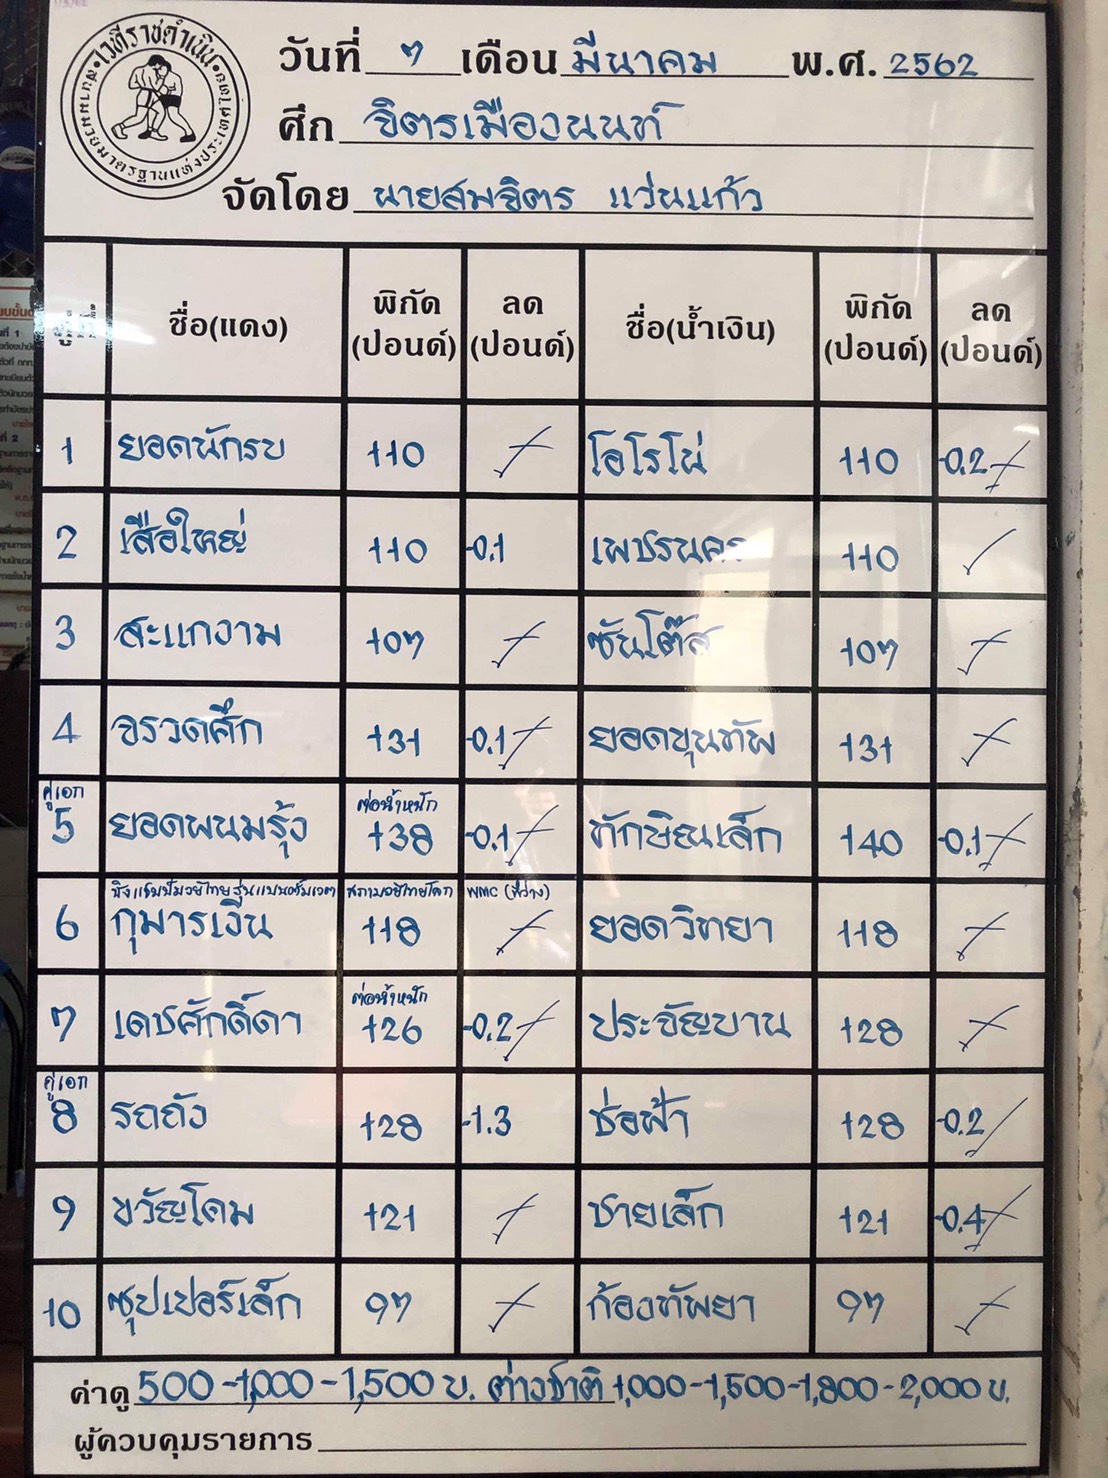 เวทีราชดำเนิน
สนามมวยมาตรฐานแห่งประเทศไทย
วันที่ 7 เดือน มีนาคม พ.ศ. 2562
ศึก จิตรเมืองนนท์
จัดโดย นายสมจิตร แว่นแก้ว
คู่ที่ ชื่อ(แดง) พิกัด (ปอนด์) ลด (ปอนด์) ชื่อ(น้ำเงิน) พิกัด (ปอนด์) ลด (ปอนด์)
1 ยอดนักรบ 110 โอโรโน่ 110 -0.2
2 เสือใหญ่ 110 -0.1 เพชรนคร 110
3 สะแกงาม 107 ซันโต๊ส 107
4 จรวดศึก 131 -0.1 ยอดขุนทัพ 131
คู่เอก ต่อน้ำหนัก
5 ยอดพนมรุ้ง 138 -0.1 ทักษิณเล็ก 140 -0.1
ชิงแชมป์มวยไทยรุ่นแบนตั้มเวท สภามวยไทยโลก WMC (ที่ว่าง)
6 กุมารเงิน 118 ยอดวิทยา 118
ต่อน้ำหนัก
7 เดชศักดิ์ดา 126 -0.2 ประจัญบาน 128
คู่เอก
8 รถถัง 128 -1.3 ช่อฟ้า 128 -0.2
9 ขวัญโดม 121 ชายเล็ก 121 -0.4
10 ซุปเปอร์เล็ก 97 ก้องทัพยา 97
ค่าดู 500-1,000-1,500 บ. ต่างชาติ 1,000-1,500-1,800-2,000 บ.
ผู้ควบคุมรายการ